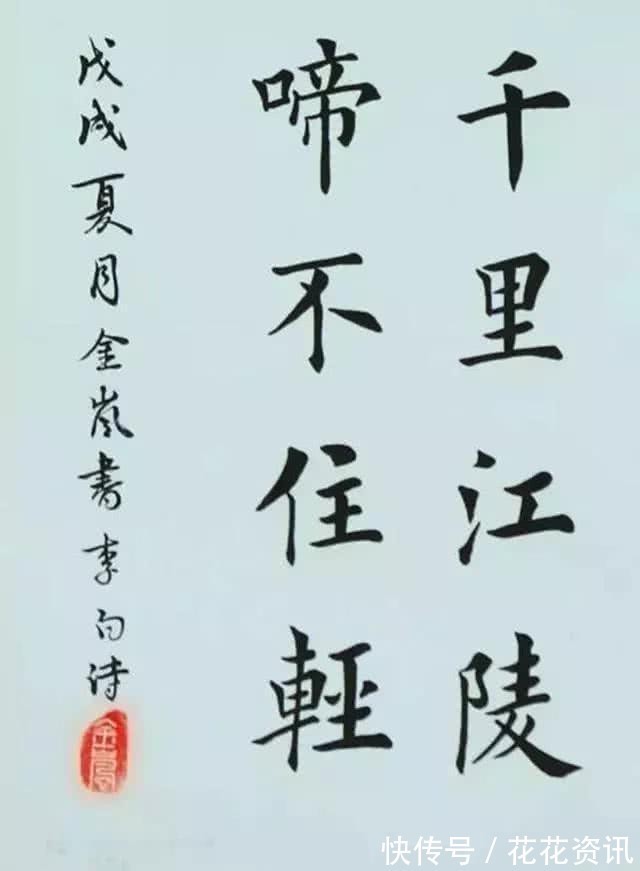 千里江陵
啼不住輕
戊戌夏月金嵐書李白诗
快传号/花花资讯